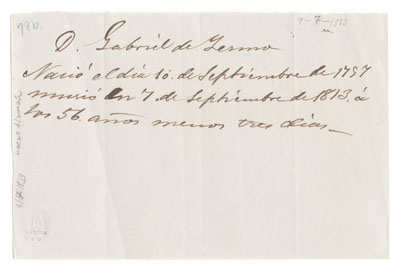 78b.
9-7-1813
D. Gabriél de Yermo
Nació el día 10. de Septiembre de 1757
murió en 7. de Septiembre de 1813. á
los 56. años menos tres días_